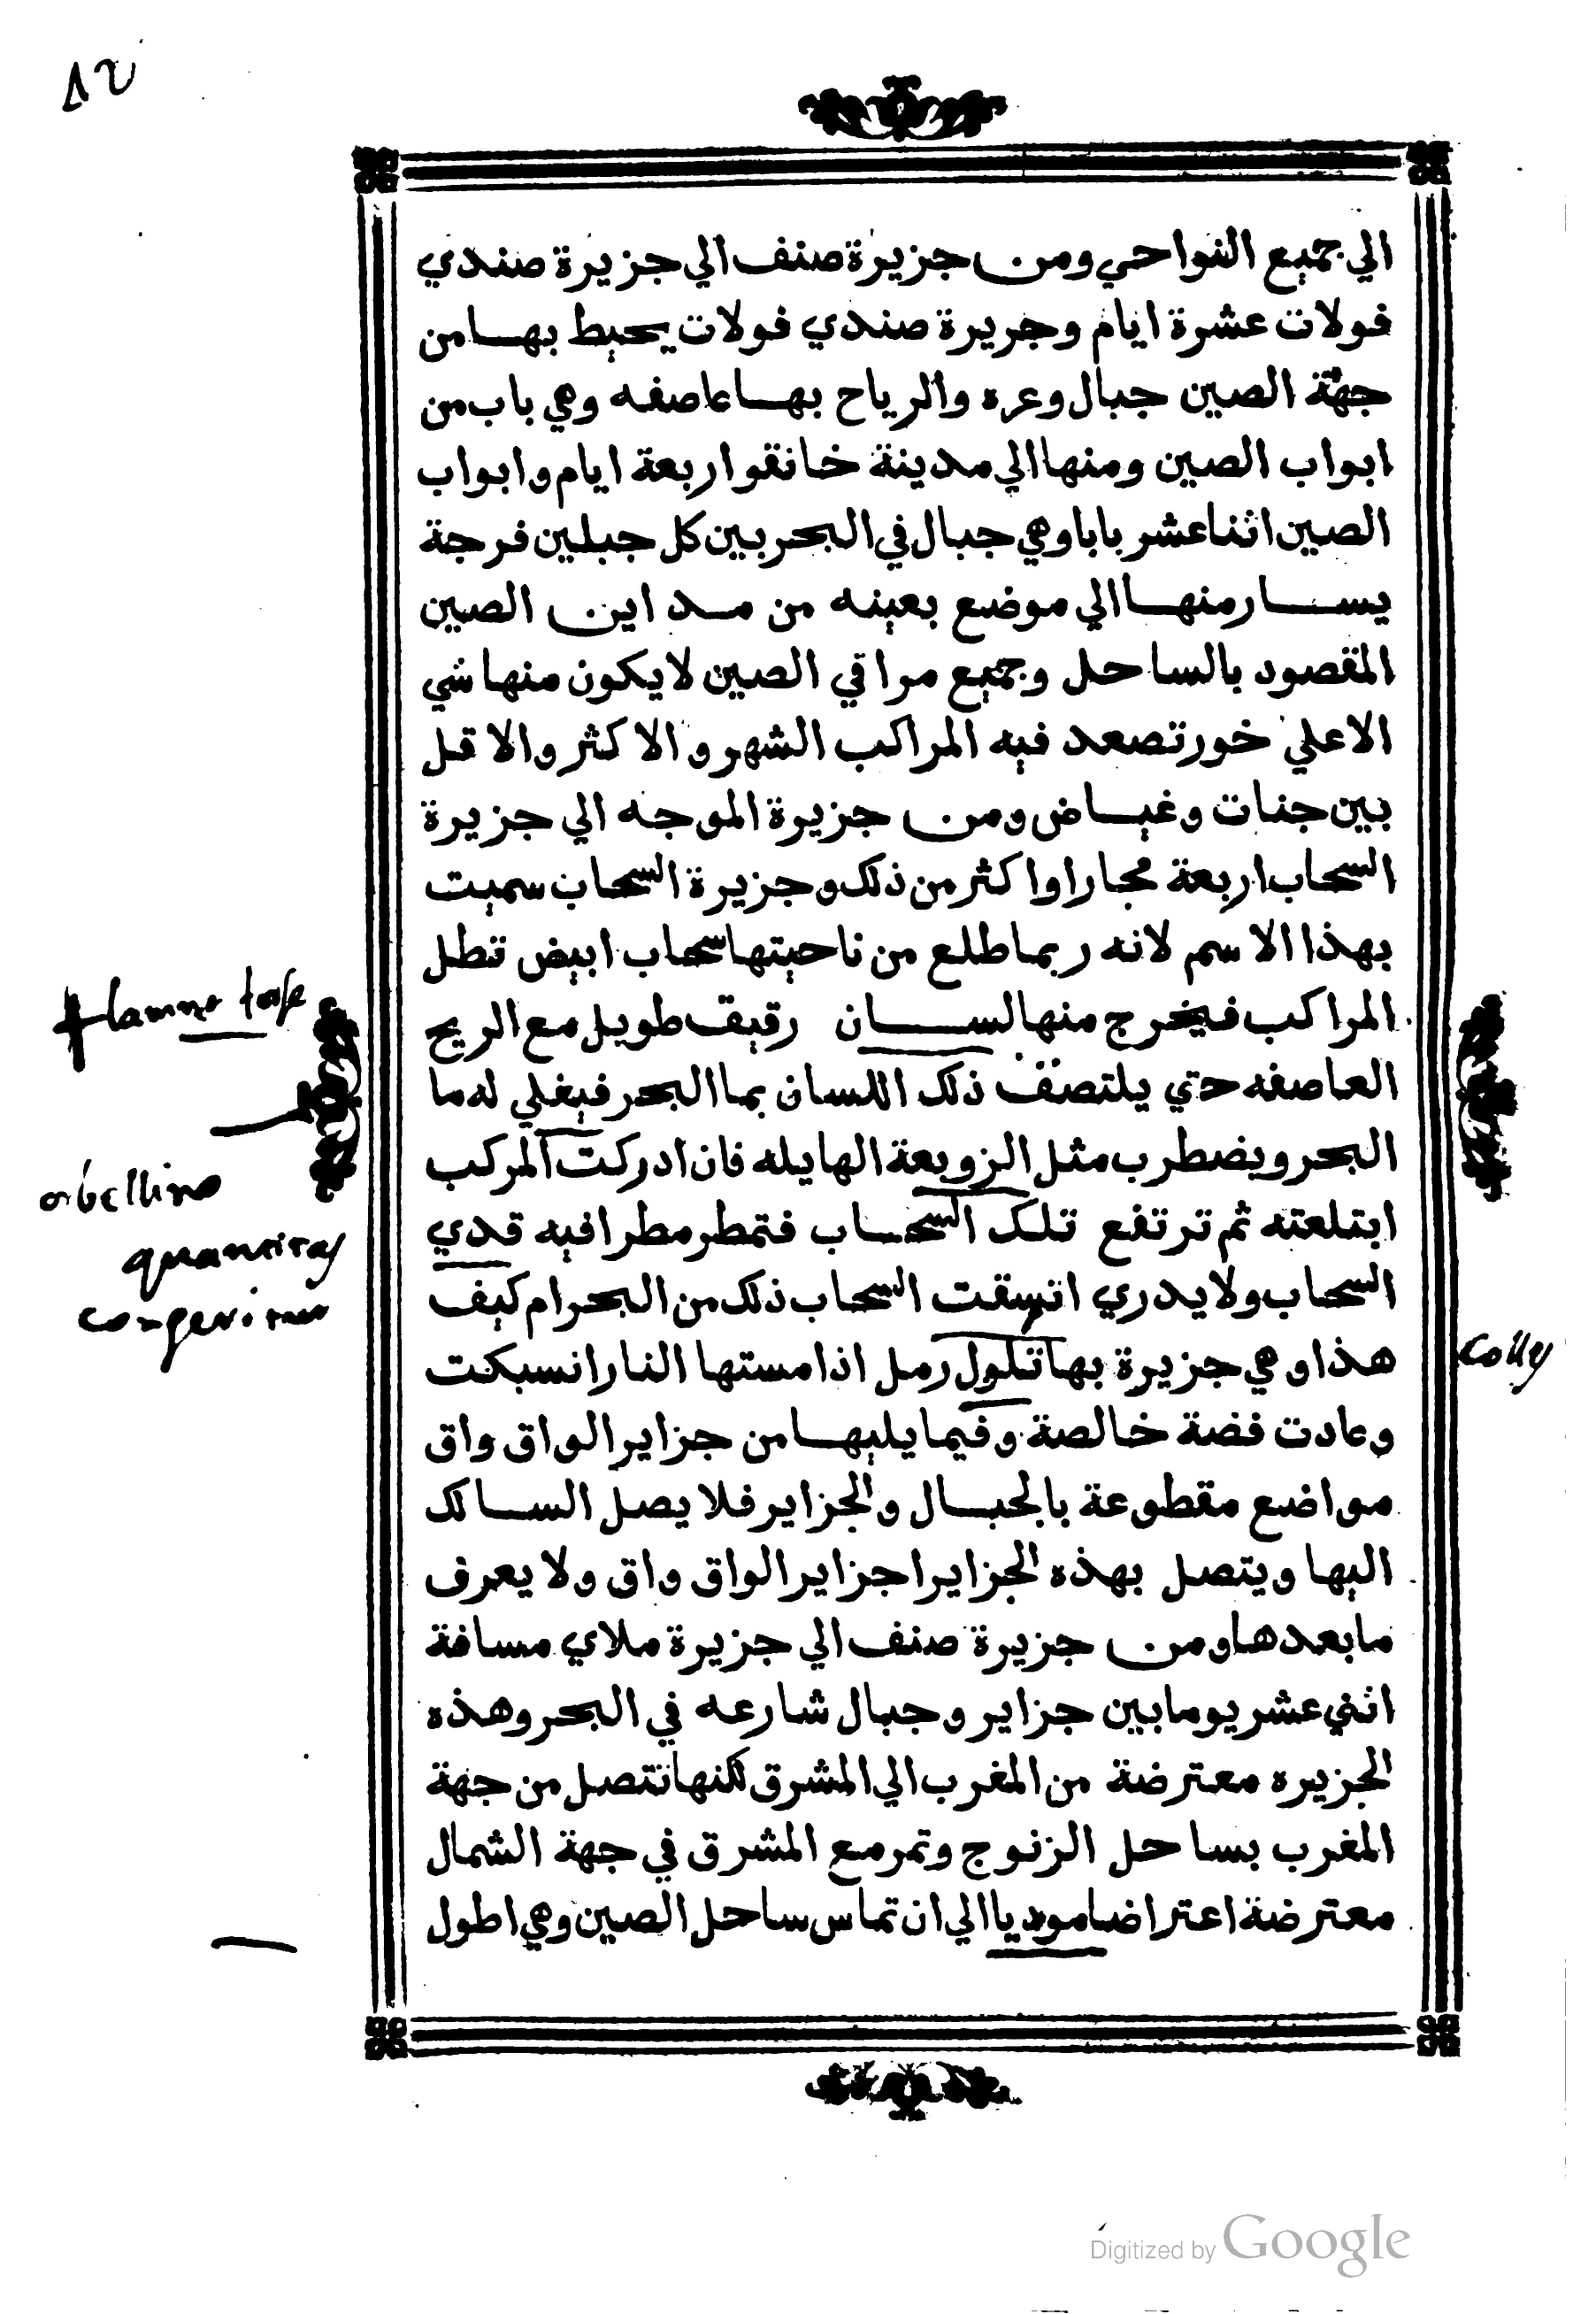 الي جميع النواحي ومن جزيرة صنف الي جزيرة صندي
فولات عشرة ايام وجريرة صندي فولات يحيط بها من
جهة الصين جبال وعره والرياح بها عاصفه وهي باب من
ابواب الصين ومنها الي مدينة خانقوا ربعة ايام وابواب
الصين اثنا عشر بابا وهي جبال في البحر بين كل جبلين فرجة
يسار منها الي موضع بعينه من مداين الصين
المقصود بالساحل وجميع مراقي الصين لا يكون منها شي
الا علي خور تصعد فيه المراكب الشهر والاكثر والاقل
بين جنات وغياض ومن جزيرة الموجه الي جزيرة
السحاب اربعة مجار او اكثر من ذلك وجزيرة السحاب سميت
بهذا الاسم لانه ربما طلع من ناحيتها سحاب ابيض تظل
المراكب فيخرج منها لسان رقيق طويل مع الريح
العاصفه حتي يلتصق ذلك اللسان بما البحر فيغلي له ما
البحر ويضطرب مثل الزوبعة الهايله فان ادركت المركب
ابتلعته ثم ترتفع تلك السحاب فتمطر مطرا فيه قدي
السحاب ولا يدري اتسقت السحاب ذلك من البحر ام كيف
هذا وهي جزيرة بها تلول رمل اذا مستها النار انسبكت
وعادت فضة خالصة وفيما يليها من جزاير الواق واق
مواضع مقطوعة بالجبال والجزاير فلا يصل السالك
اليها ويتصل بهذه الجزاير اجزاير الواق واق ولا يعرف
ما بعدها ومن جزيرة صنف الي جزيرة ملاي مسافة
اثني عشر يوما بين جزاير وجبال شارعه في البحر وهذه
الجزيره معترضة من المغرب الي المشرق لكنها تتصل من جهة
المغرب بساحل الزنوج وتمر مع المشرق في جهة الشمال
معترضة اعتراضا موديا الي ان تماس ساحل الصين وهي اطول
colly
Digitized by Google